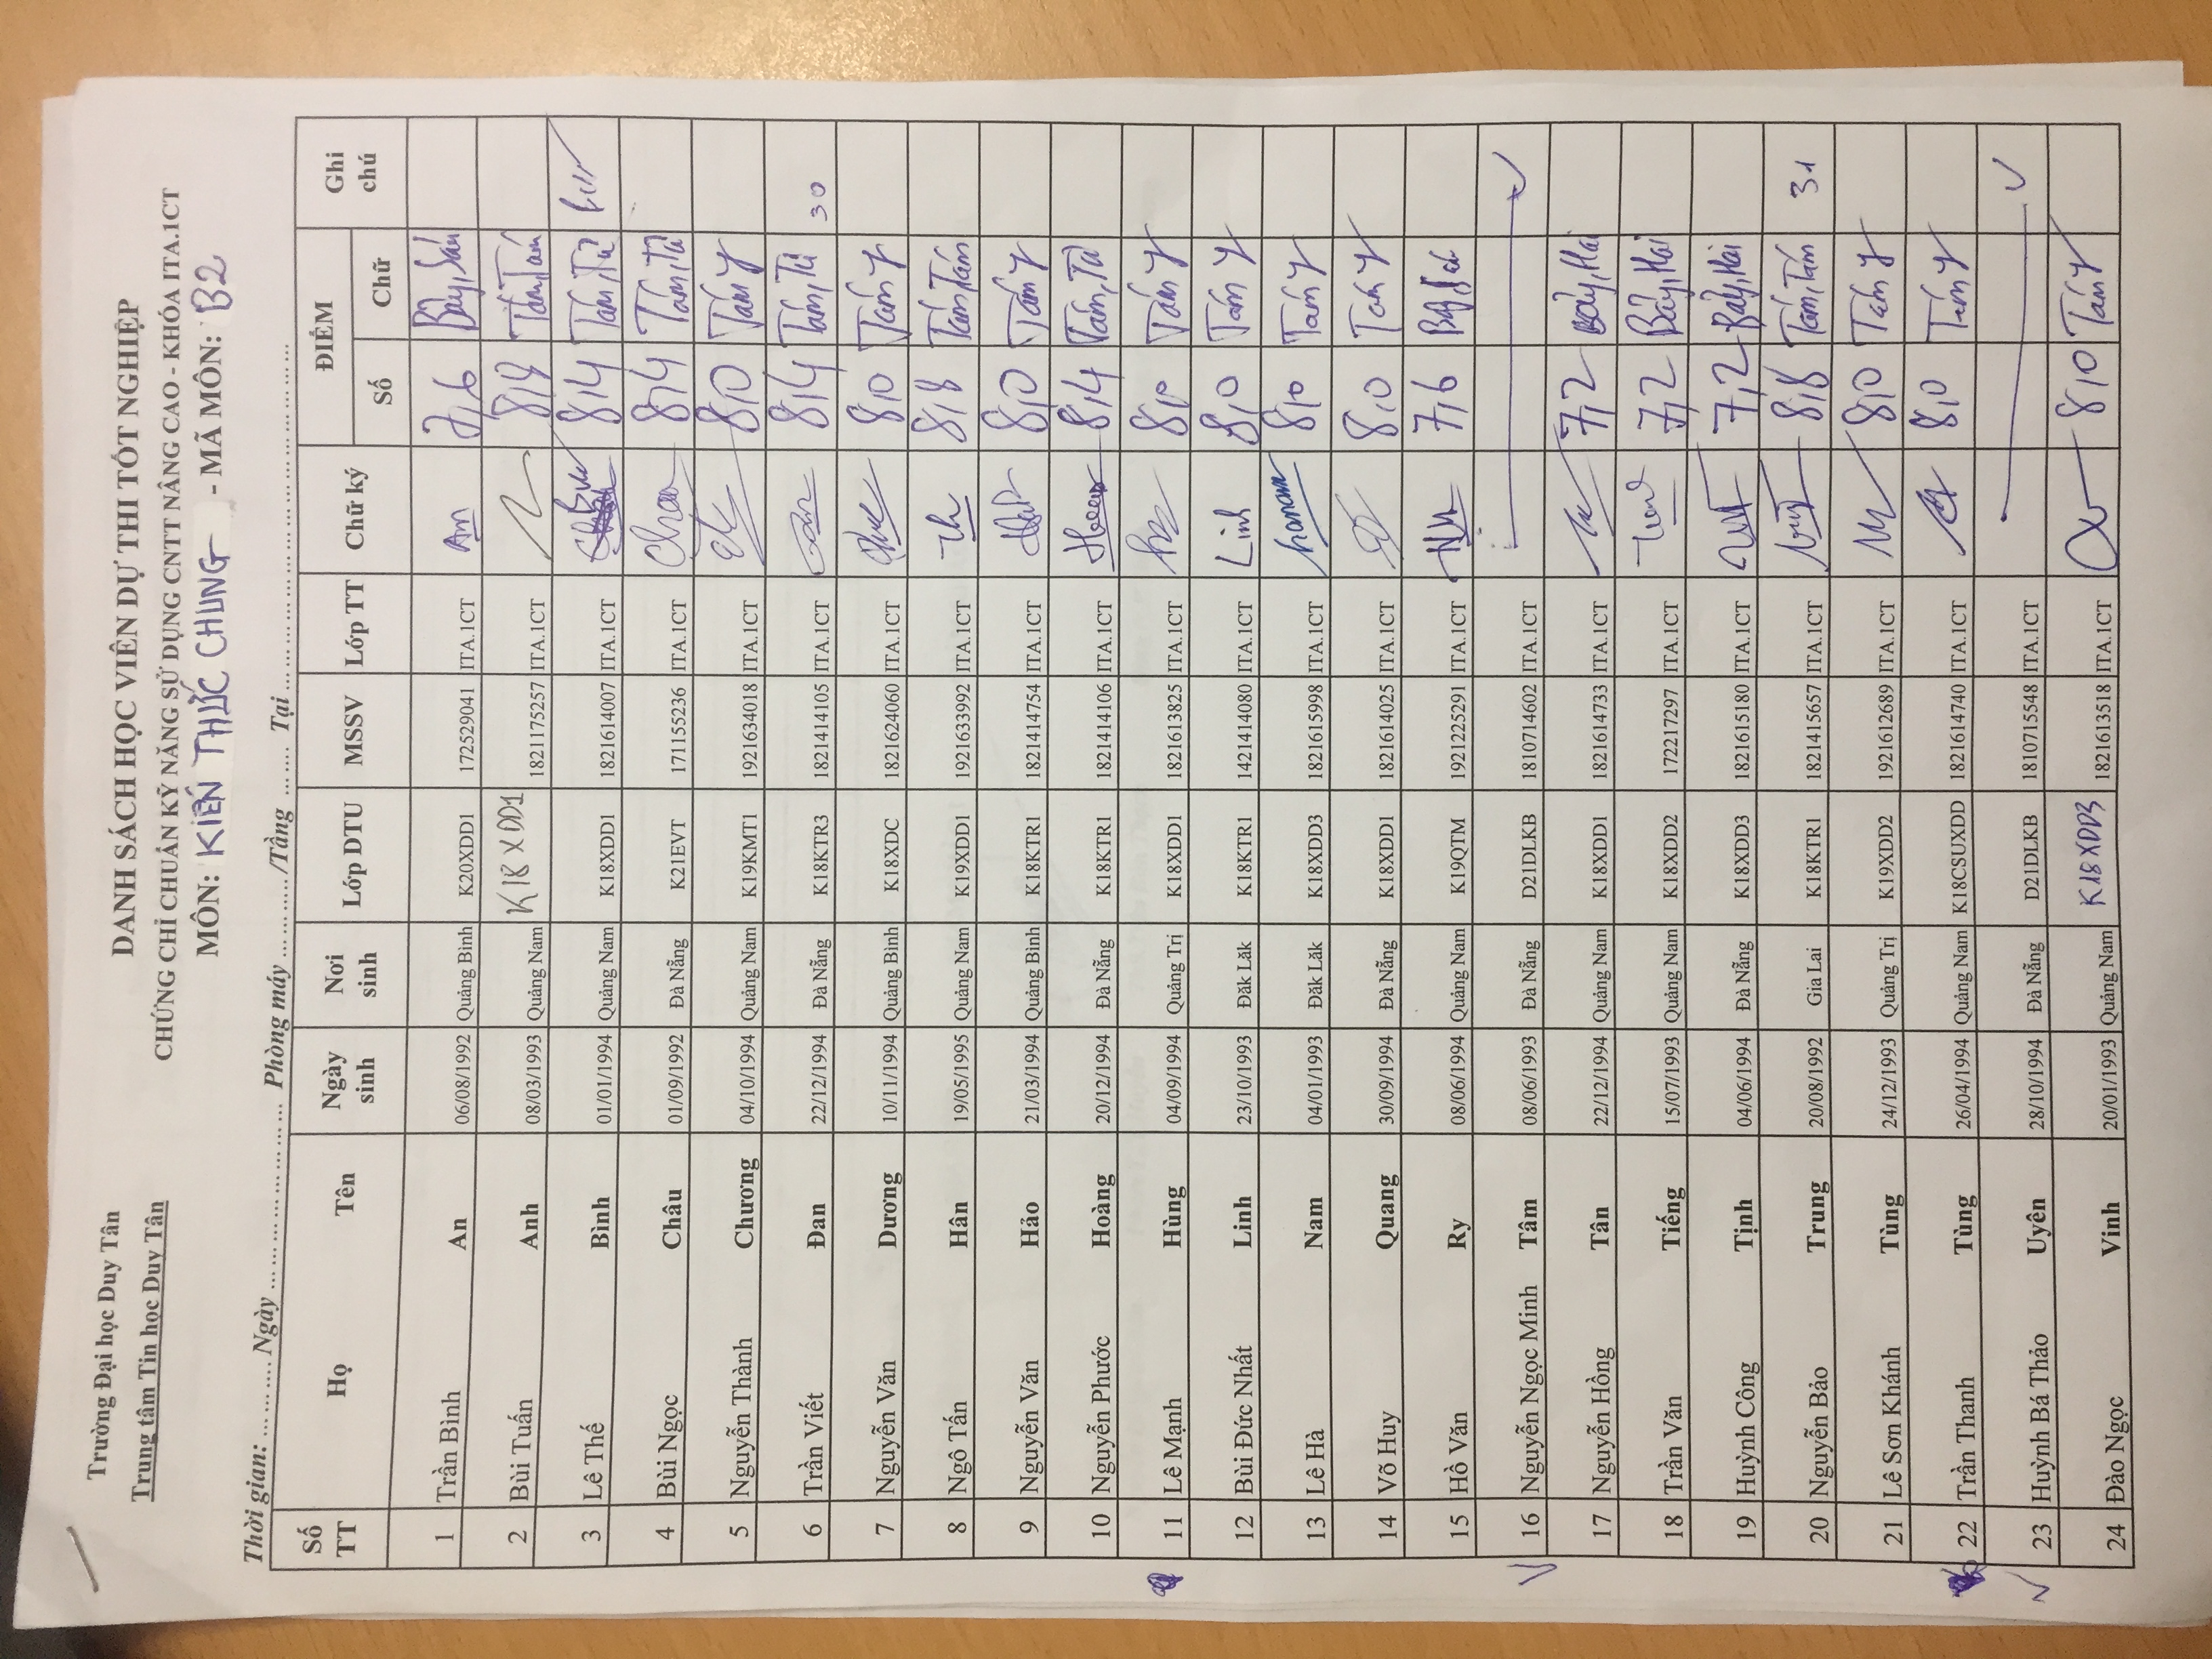 Trường Đại học Duy Tân
Trung tâm Tin học Duy Tân
DANH SÁCH HỌC VIÊN DỰ THI TỐT NGHIỆP
CHỨNG CHỈ CHUẨN KỸ NĂNG SỬ DỤNG CNTT NÂNG CAO - KHÓA ITA.1CT
MÔN: KIẾN THỨC CHUNG - MÃ MÔN: B2
Thời gian: ………Ngày ……………………… Phòng máy ………/Tầng …… Tại ………………………
Số TT Họ Tên Ngày sinh Nơi sinh Lớp DTU MSSV Lớp TT Chữ ký ĐIỂM Số Chữ Ghi chú
1 Trần Bình An 06/08/1992 Quảng Bình K20XDD1 172529041 ITA.1CT An 7,6 Bảy, Sáu
2 Bùi Tuấn Anh 08/03/1993 Quảng Nam K18XDD1 1821175257 ITA.1CT 8,8 Tám, Tám
3 Lê Thế Bình 01/01/1994 Quảng Nam K18XDD1 1821614007 ITA.1CT 8,4 Tám, Tư
4 Bùi Ngọc Châu 01/09/1992 Đà Nẵng K21EVT 171155236 ITA.1CT 8,4 Tám, Tư
5 Nguyễn Thành Chương 04/10/1994 Quảng Nam K19KMT1 1921634018 ITA.1CT 8,0 Tám y
6 Trần Viết Đan 22/12/1994 Đà Nẵng K18KTR3 1821414105 ITA.1CT 8,4 Tám, Tư 30
7 Nguyễn Văn Dương 10/11/1994 Quảng Bình K18XDC 1821624060 ITA.1CT 8,0 Tám y
8 Ngô Tấn Hân 19/05/1995 Quảng Nam K19XDD1 1921633992 ITA.1CT 8,8 Tám, Tám
9 Nguyễn Văn Hảo 21/03/1994 Quảng Bình K18KTR1 1821414754 ITA.1CT 8,0 Tám y
10 Nguyễn Phước Hoàng 20/12/1994 Đà Nẵng K18KTR1 1821414106 ITA.1CT 8,4 Tám, Tư
11 Lê Mạnh Hùng 04/09/1994 Quảng Trị K18XDD1 1821613825 ITA.1CT 8,0 Tám y
12 Bùi Đức Nhất Linh 23/10/1993 Đăk Lăk K18KTR1 1421414080 ITA.1CT Linh 8,0 Tám y
13 Lê Hà Nam 04/01/1993 Đăk Lăk K18XDD3 1821615998 ITA.1CT 8,0 Tám y
14 Võ Huy Quang 30/09/1994 Đà Nẵng K18XDD1 1821614025 ITA.1CT 8,0 Tám y
15 Hồ Văn Ry 08/06/1994 Quảng Nam K19QTM 1921225291 ITA.1CT 7,6 Bảy Sáu
16 Nguyễn Ngọc Minh Tâm 08/06/1993 Đà Nẵng D21DLKB 1810714602 ITA.1CT
17 Nguyễn Hồng Tân 22/12/1994 Quảng Nam K18XDD1 1821614733 ITA.1CT 7,2 Bảy, Hai
18 Trần Văn Tiếng 15/07/1993 Quảng Nam K18XDD2 172217297 ITA.1CT 7,2 Bảy, Hai
19 Huỳnh Công Tịnh 04/06/1994 Đà Nẵng K18XDD3 1821615180 ITA.1CT 7,2 Bảy, Hai
20 Nguyễn Bảo Trung 20/08/1992 Gia Lai K18KTR1 1821415657 ITA.1CT 8,8 Tám, Tám 31
21 Lê Sơn Khánh Tùng 24/12/1993 Quảng Trị K19XDD2 1921612689 ITA.1CT 8,0 Tám y
22 Trần Thanh Tùng 26/04/1994 Quảng Nam K18CSUXDD 1821614740 ITA.1CT 8,0 Tám y
23 Huỳnh Bá Thảo Uyên 28/10/1994 Đà Nẵng D21DLKB 1810715548 ITA.1CT
24 Đào Ngọc Vinh 20/01/1993 Quảng Nam K18XDD3 1821613518 ITA.1CT 8,0 Tám y